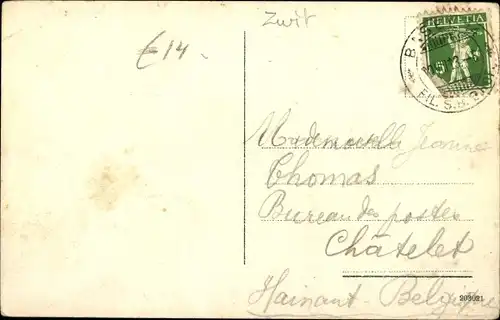 Zwit
€14
HELVETIA
5
FIL. S.B.B.
Mademoiselle Jeanne
Thomas
Bureau des postes
Châtelet
Hainant - Belgique
203021